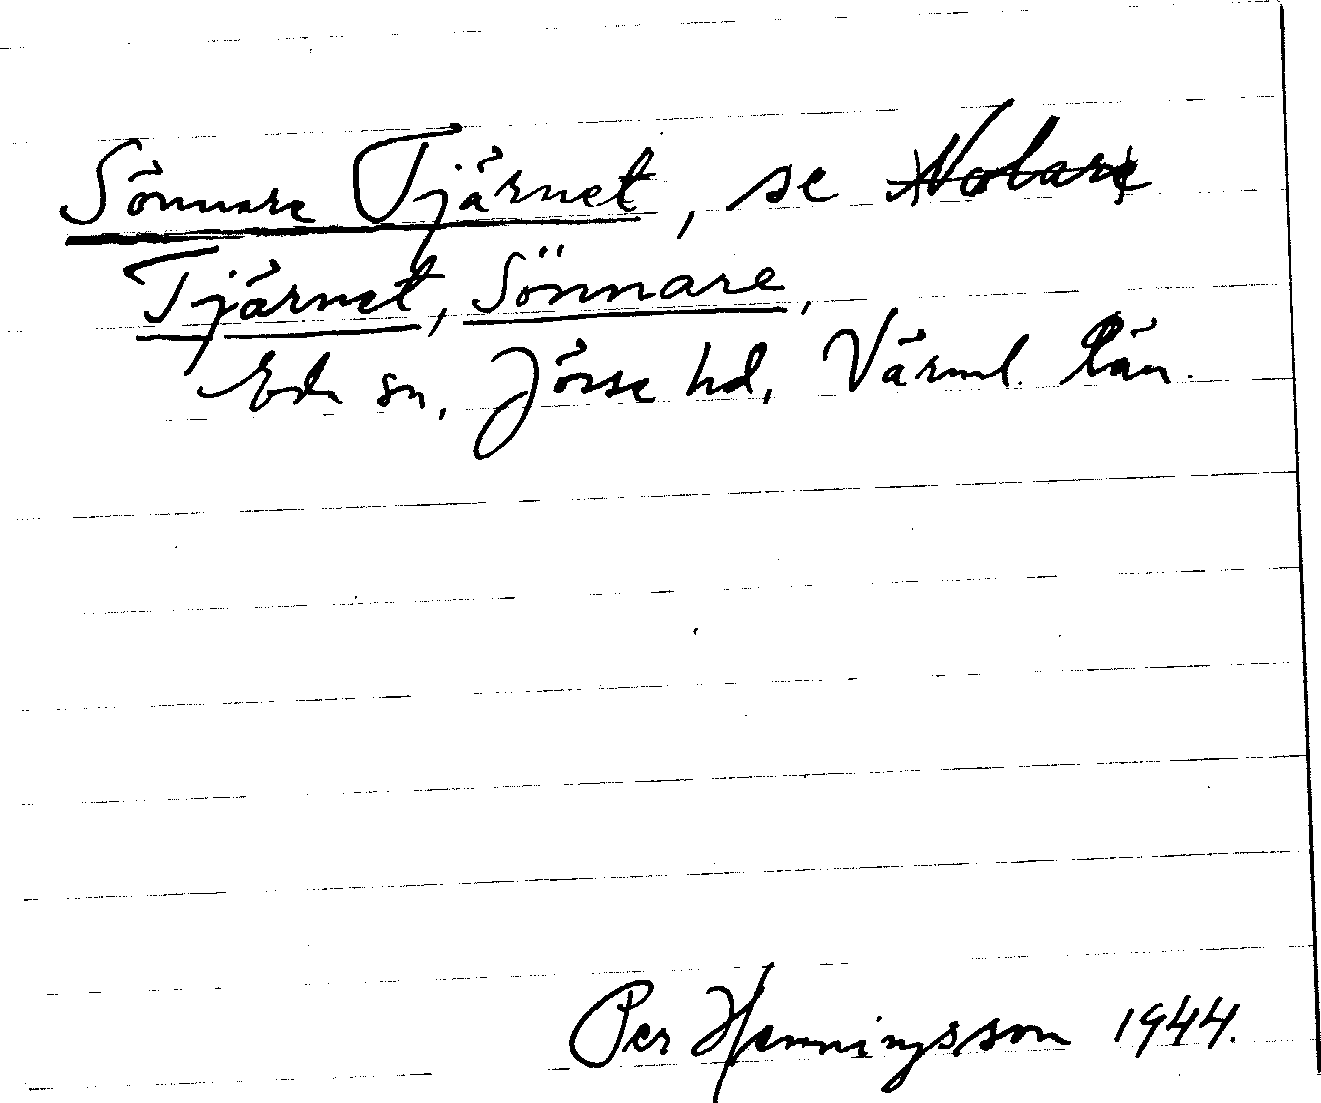 Sönnare Tjärnet, se Nolare
Tjärnet, Sönnare,
Eda sn, Jösse hd, Värml. län.
Per Henningsson 1944.